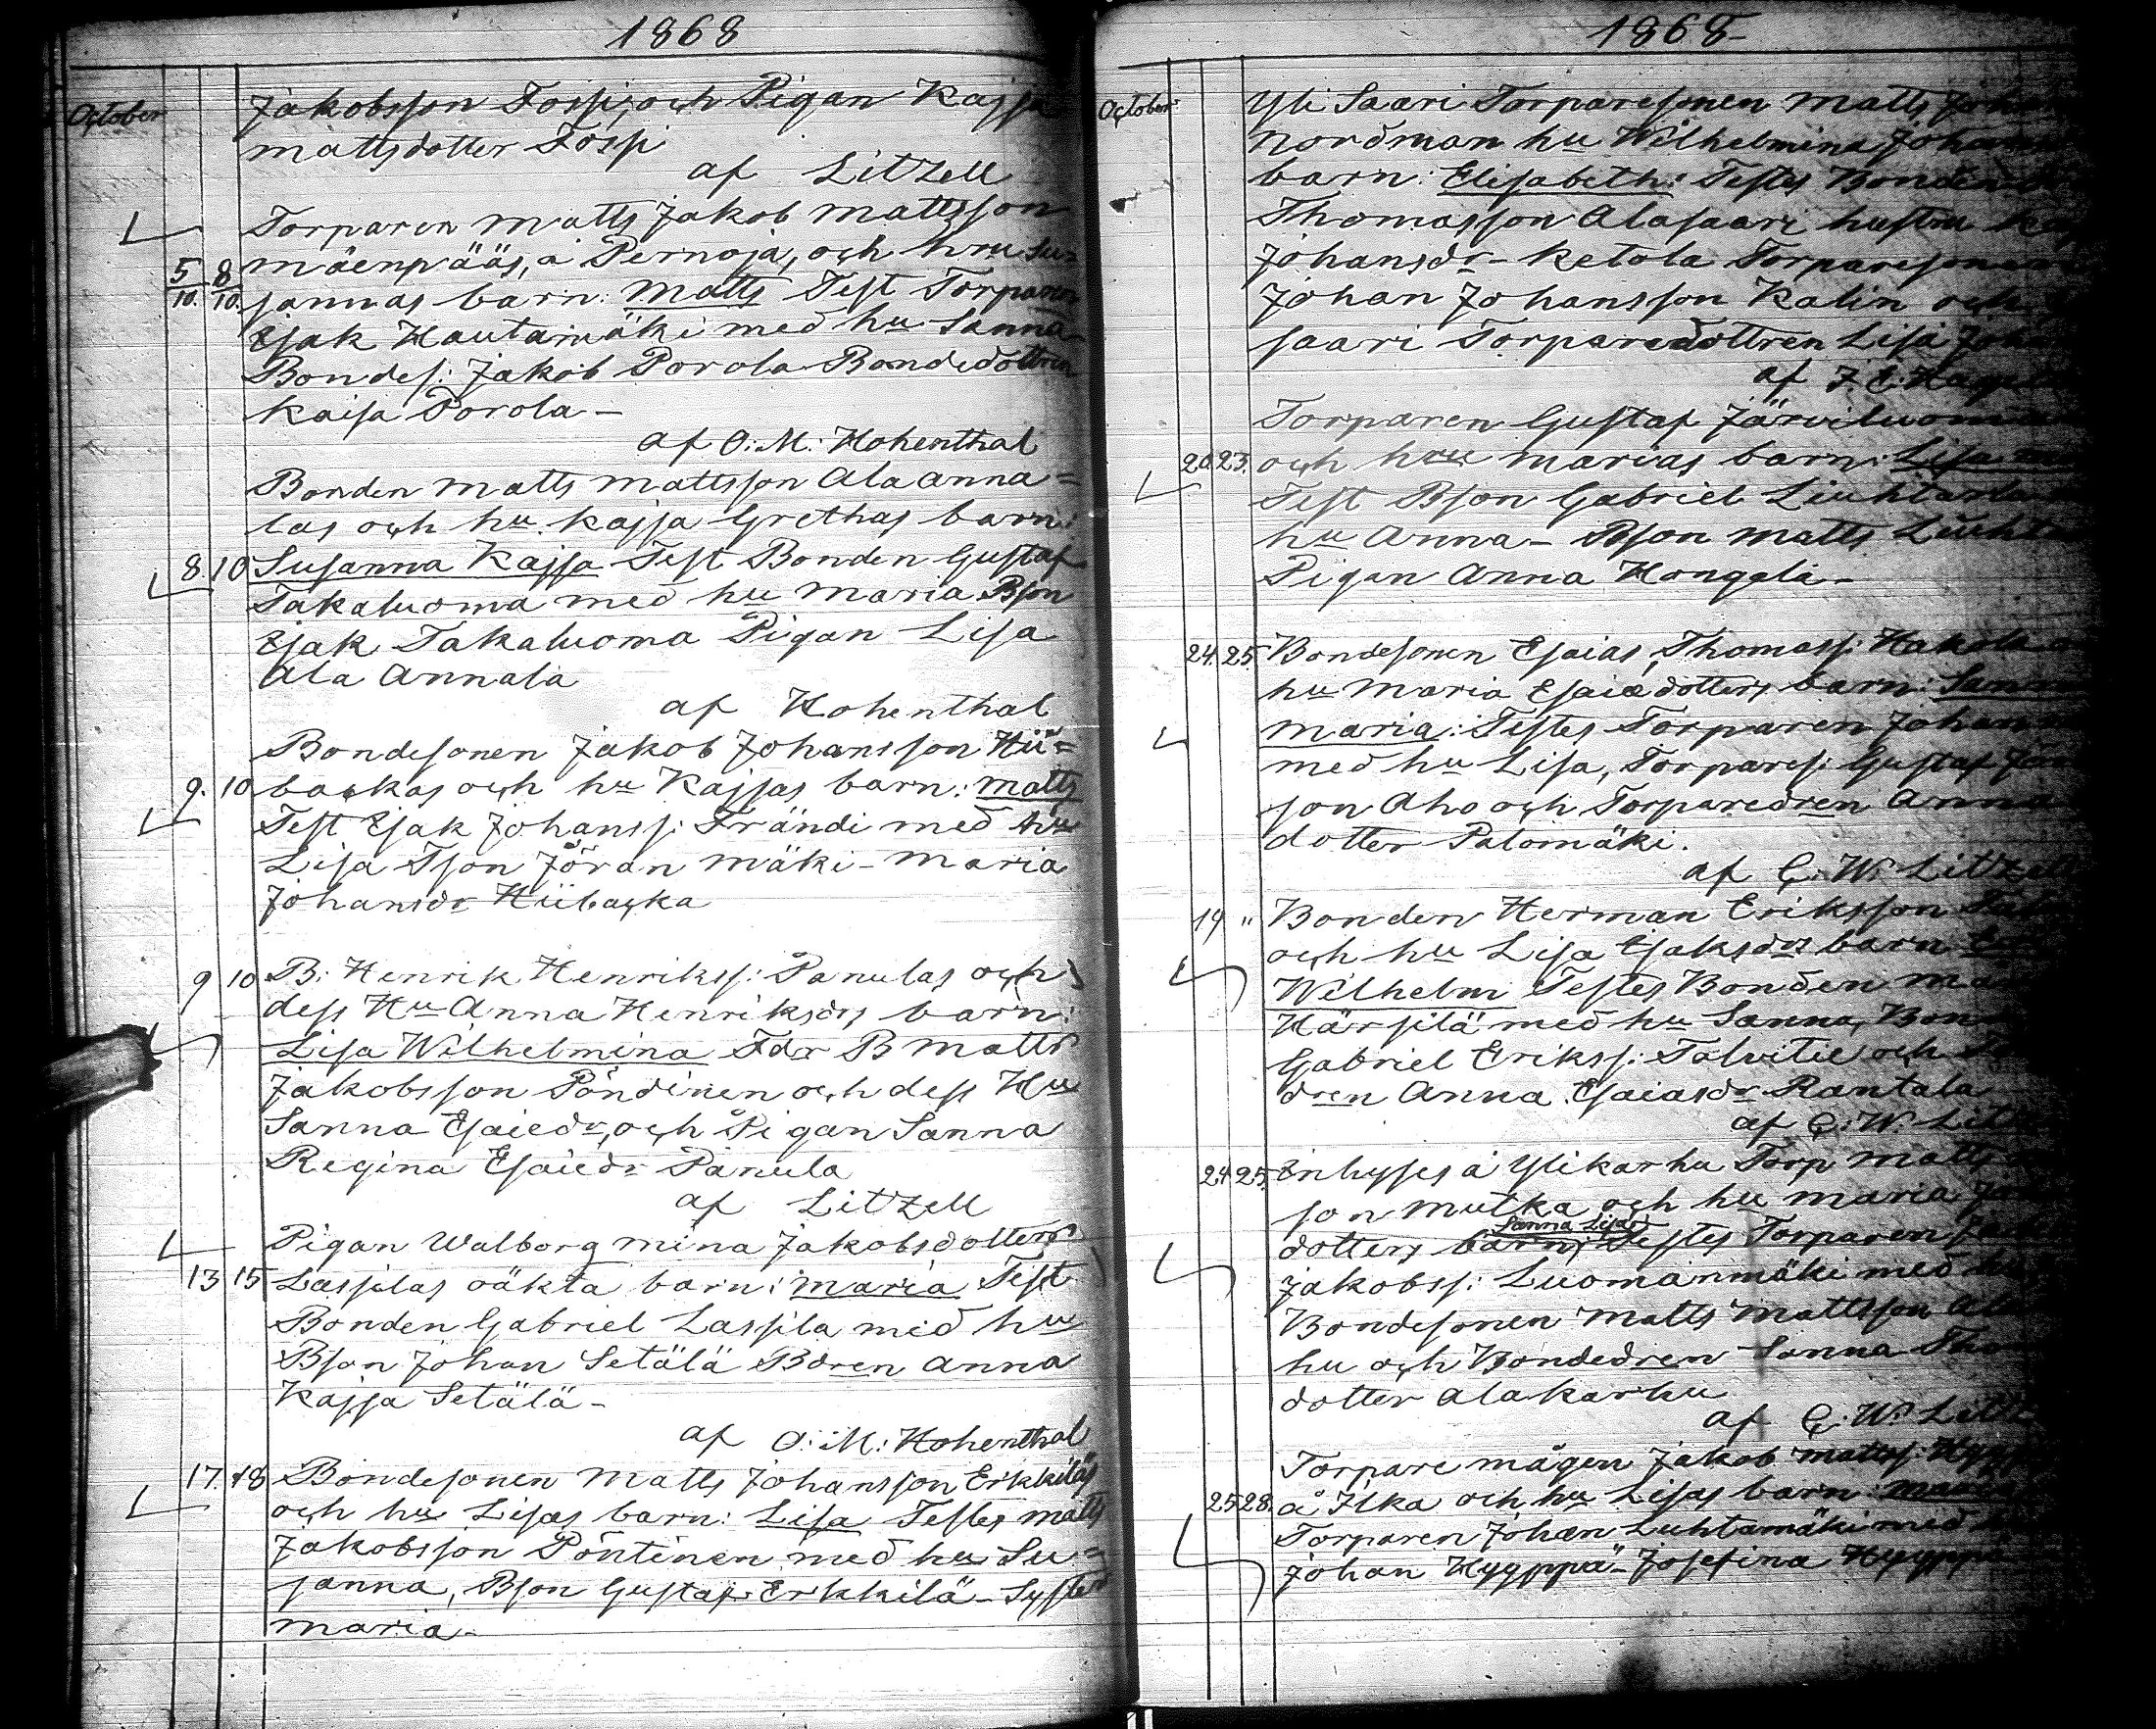 1868
October
Jakobsson Tossi, och Pigan Kajsa
Mattsdotter Tossi
af Litzell
Torparen Matts Jakob Mattsson
Mäenpääs, å Pernoja, och hru Su-
5/10. 8/10. sannas barn: Matts Test Torparen
Esak Hautamäki med hu Sanna
Bondes: Jakob Porola Bondedottren
Kaisa Porola –
af O: M: Hohenthal
Bonden Matts Mattsson Ala anna=
las och hu Kajsa Grethas barn:
8. 10 Susanna Kajsa Test Bonden Gustaf
Takaluoma med hu Maria Bson
Esak Takaluoma Pigan Lisa
Ala Annala
af Hohenthal
Bondesonen Jakob Johansson Hii=
9. 10 backas och hu Kajsas barn: Matts
Test Esak Johanss: Frändi med hu
Lisa Tson Jöran Mäki – Maria
Johansdr Hiibacka
9 10 B: Henrik Henrikss: Panulas och
dess Hu Anna Henriksdrs barn:
Lisa Wilhelmina Fdr B Matts
Jakobsson Pöndinen och dess Hu
Sanna Esaiedr, och Pigan Sanna
Regina Esaiedr Panula
af Litzell
Pigan Walborg Mina Jakobsdotters
13 15 Lassilas oäkta barn: Maria Test
Bonden Gabriel Lassila med hu
Bson Johan Setälä Bdren Anna
Kajsa Setälä –
af O: M: Hohenthal
17. 18 Bondesonen Matts Johansson Erkkiläs
och hu Lisas barn: Lisa Testes Matts
Jakobsson Pöntinen med hu Su=
sanna, Bson Gustaf Erkkilä – Syster
Maria –
1868
October
Yli Saari Torparesonen Matts
Nordman hu Wilhelmina
barn: Elisabeth: Testes Bonden
Thomasson Alasaari hustru
Johansdr – Ketola Torparesonen
Johan Johansson Kalin och
saari Torparedottren Lisa
af J. E:
Torparen Gustaf Järviluoma
20. 23. och hru Marias barn: Lisa
Test Bson Gabriel
hu Anna – Bson Matts
Pigan Anna Hongala –
24. 25. Bondesonen Esaias Thomass: Hakola
hu Maria Esaiedotters barn: Sanna
Maria: Testes Torparen Johan
med hu Lisa, Torpares: Gustaf
son Aho och Torparedren Anna
dotter Palomäki.
af C. W. Litzell
19 " Bonden Herman Eriksson
och hu Lisa Esaksdrs barn
Wilhelm Testes Bonden
Härsilä med hu Sanna,
Gabriel Erikss: Talvitie och
dren Anna Esaiasdr Rantala
af C: W.
24 25. Inhyses å Ylikarhu Torp Matts
son Mutka och hu Maria
Sanna Lisa
dotters barn; Testes Torparen
Jakobss: Luomanmäki med
Bondesonen Matts Mattsson
hu och Bondedren Sanna
dotter Alakarhu
af C: W:
Torpare mågen Jakob Matss:
25 28. å Ilka och hu Lisas barn:
Torparen Johan Luhtamäki med
Johan Hygppä – Josefina